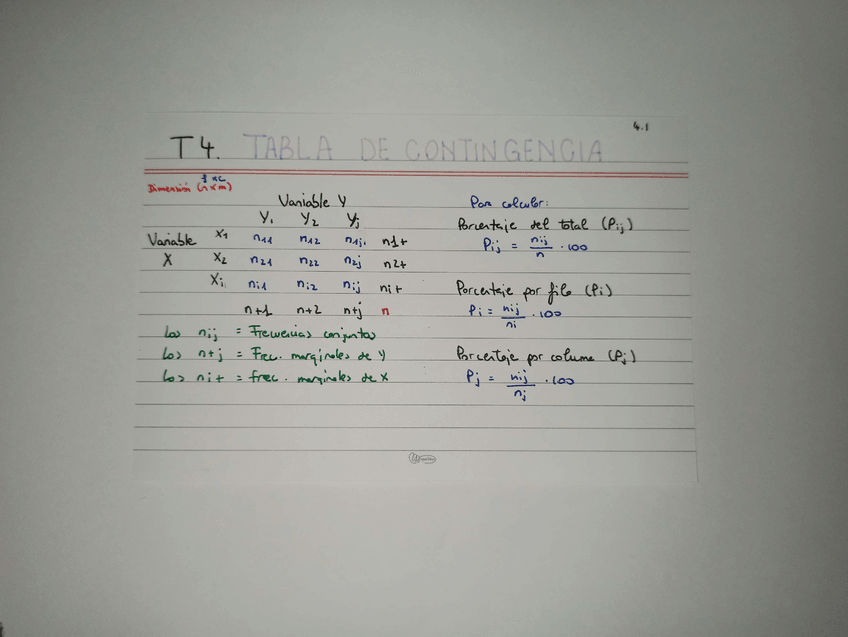 4.1
T4. TABLA DE CONTINGENCIA
f x c
Dimensión (n x m)
Variable Y
Y₁ Y₂ Yj
Variable X₁ n11 n12 n1j n1+
X X₂ n21 n22 n2j n2+
Xi ni1 ni2 nij ni+
n+1 n+2 n+j n
Los nij = Frecuencias conjuntas
Los n+j = Frec. marginales de Y
Los ni+ = frec. marginales de X
Para calcular:
Porcentaje del total (Pij)
Pij = nij / n · 100
Porcentaje por fila (Pi)
Pi = nij / ni · 100
Porcentaje por columna (Pj)
Pj = nij / nj · 100